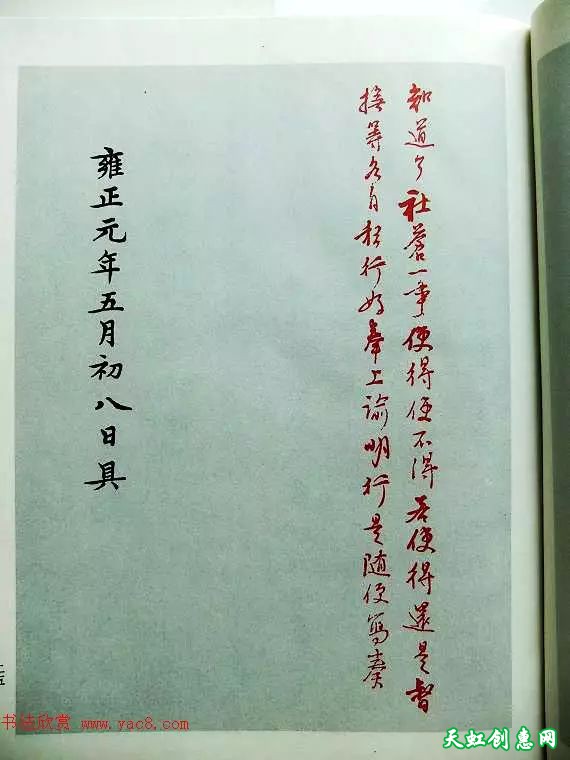 知道了社蒼一事使得使不得若使得還是督
撫等各自私行好奉上諭明行是随便寫奏
雍正元年五月初八日具
书法欣赏 www.yac8.com
天虹创惠网